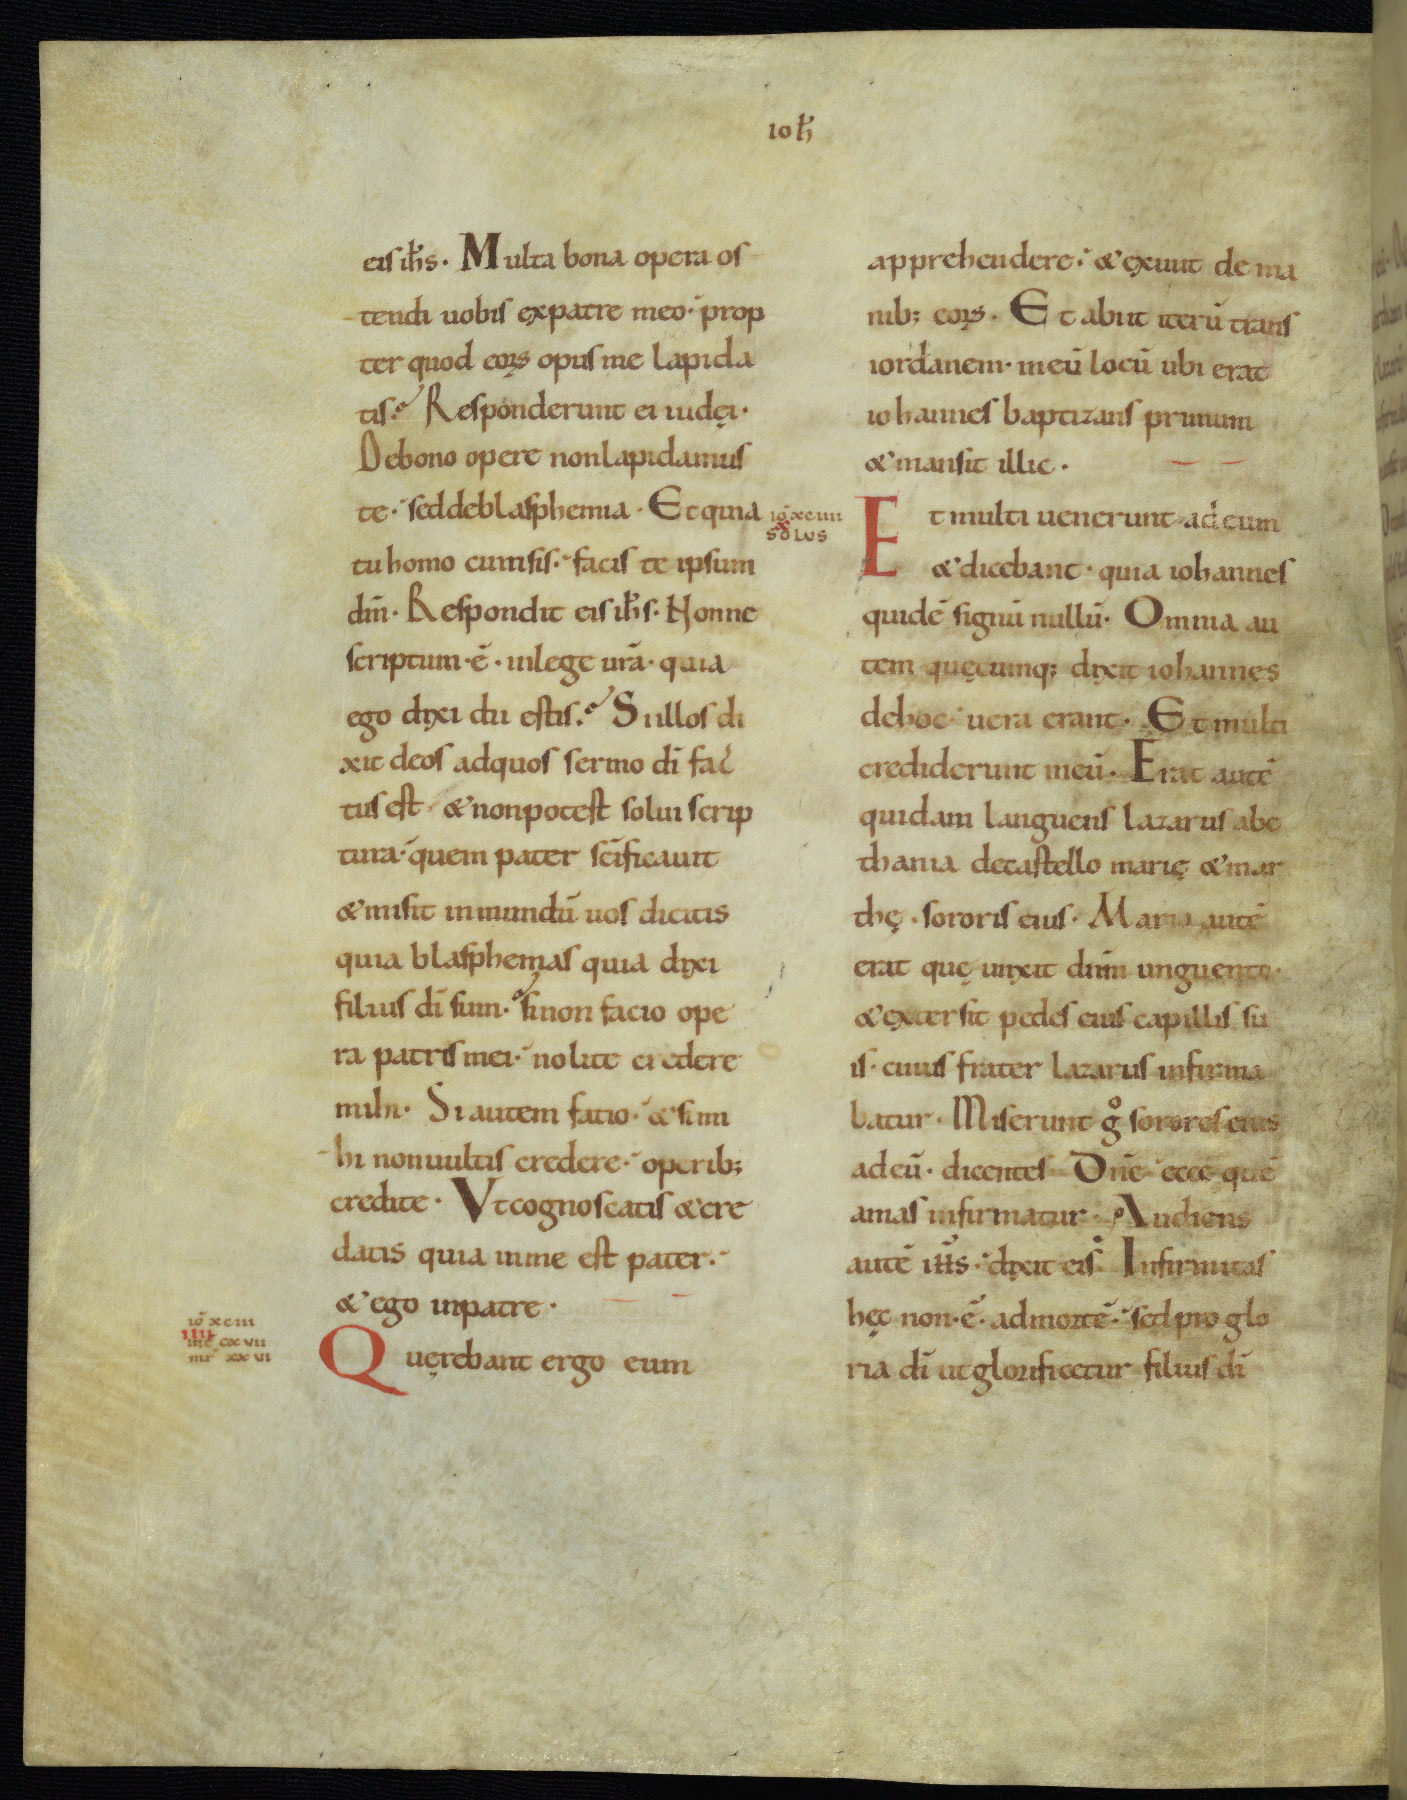 ioħ
eis iħs. Multa bona opera os
tendi uobis ex patre meo. prop
ter quod eorꝝ opus me lapida
tis. Responderunt ei iudęi.
De bono opere non lapidamus
te. sed de blasphemia. Et quia
tu homo cum sis. facis te ipsum
dm̄. Respondit eis iħs. Nonne
scriptum. ē. in lege ur̄a. quia
ego dixi dii estis. Si illos di
xit deos ad quos sermo dī fac
tus est. & non potest solui scrip
tura. quem pater sc̄ificauit
& misit in mundū uos dicitis
quia blasphemas quia dixi
filius dī sum. si non facio ope
ra patris mei. nolite credere
mihi. Si autem fatio. & si mi
hi non uultis credere. operib;
credite. Vt cognoscatis & cre
datis quia in me est pater.
& ego in patre.
iō xciii
iiii
mt̄ cxvii
mr̄ xxvi
Quęrebant ergo eum
apprehendere. & exiuit de ma
nib; eorꝝ. Et abiit iterū trans
iordanem. in eū locū ubi erat
iohannes baptizans primum
& mansit illic.
iō xciiii
x
solus
Et multi uenerunt ad eum
& dicebant. quia iohannes
quidē signū nullū. Omnia au
tem quęcumq; dixit iohannes
de hoc. uera erant. Et multi
crediderunt in eū. Erat autē
quidam languens lazarus a be
thania de castello marię & mar
thę. sororis eius. Maria autē
erat quę unxit dnm̄ unguento.
& extersit pedes eius capillis su
is. cuius frater lazarus infirma
batur. Miserunt gͦ sorores eius
ad eū. dicentes Dn̄e ecce quē
amas infirmatur. Audiens
autē iħs. dixit eis. Infirmitas
hęc non. ē. ad mortē. sed pro glo
ria dī ut glorificetur filius dī